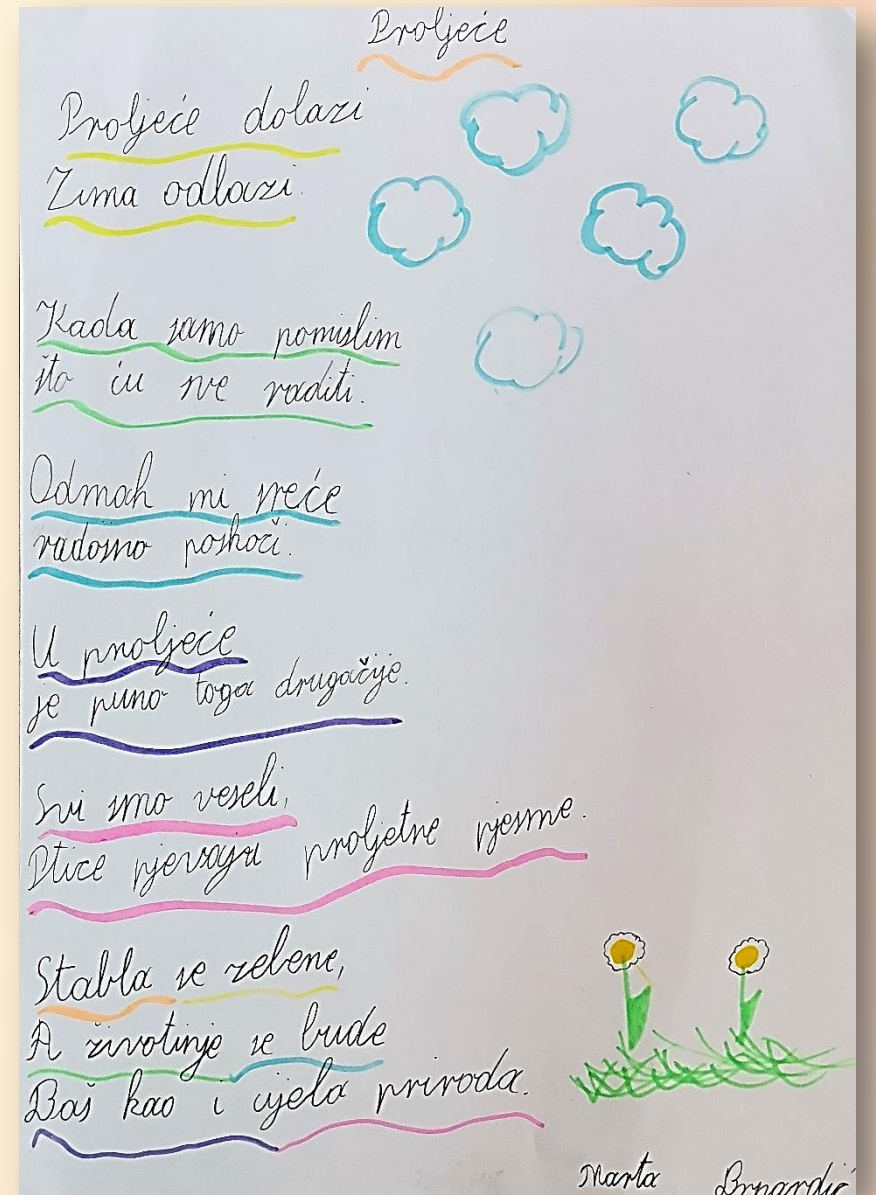 Proljeće
Proljeće dolazi
Zima odlazi.
Kada samo pomislim
što ću sve raditi.
Odmah mi sreće
radosno poskoči.
U proljeće
je puno toga drugačije.
Svi smo veseli,
Ptice pjevaju proljetne pjesme.
Stabla se zelene,
A životinje se bude
Baš kao i cijela priroda.
Marta Brnardić